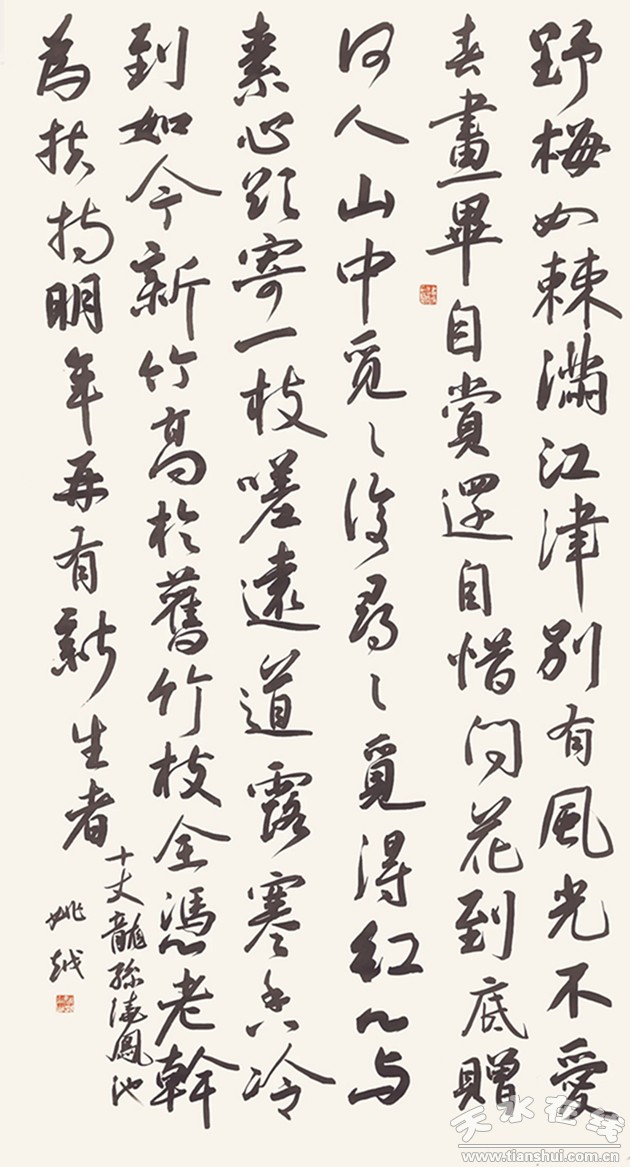 野梅如棘滿江津別有風光不愛
春畫畢自賞還自惜問花到底贈
何人山中覓〻復尋〻覓得紅心與
素心欲寄一枝嗟遠道露寒香冷
到如今新竹高於舊竹枝全憑老幹
為扶持明年再有新生者
十丈龍孫繞鳳池
姚越
天水在线
www.tianshui.com.cn